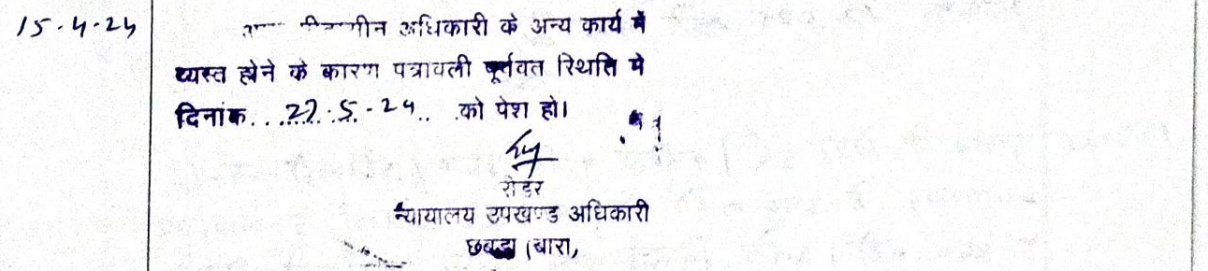 15-4-24
अधिकारी के अन्य कार्य में
व्यस्त होने के कारण पत्रावली पूर्ववत स्थिति मे
दिनांक...27.5.24.. को पेश हो।
रीडर
न्यायालय उपखण्ड अधिकारी
छबड़ा (बारा,